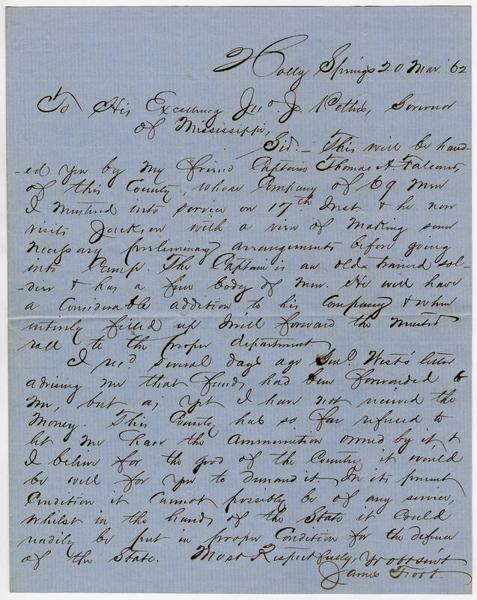 Holly Springs 20 Mar. '62
To His Excellency Jno. J. Pettus, Governor
of Mississippi,
Sir - This will be hand-
-ed you by my friend Captain Thomas A. Falconer,
of this County, whose Company of 69 men
I mustered into service on 17th Inst. & he now
visits Jackson with a view of making some
necessary preliminary arrangements before going
into Camp. The Captain is an old & trained sol-
-dier & has a fine body of men. He will have
a considerable addition to his Company & when
entirely filled up I will forward the muster
roll to the proper department
I recd. several days ago Genl. West's letter
advising me that funds had been forwarded to
me, but as yet I have not received the
money. This County has so far refused to
let me have the ammunition owned by it &
I believe for the good of the Country it would
be well for you to demand it. In its present
Condition it cannot possibly be of any service,
whilst in the hands of the State it could
readily be put in proper Condition for the defence
of the State. Most Respectfully, Yr obt svt
James